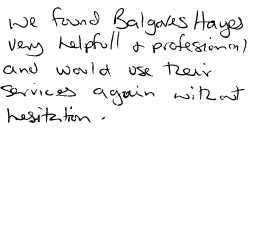 we found Balgores Hayes
very helpfull & profesional
and would use their
services again without
hesitation.